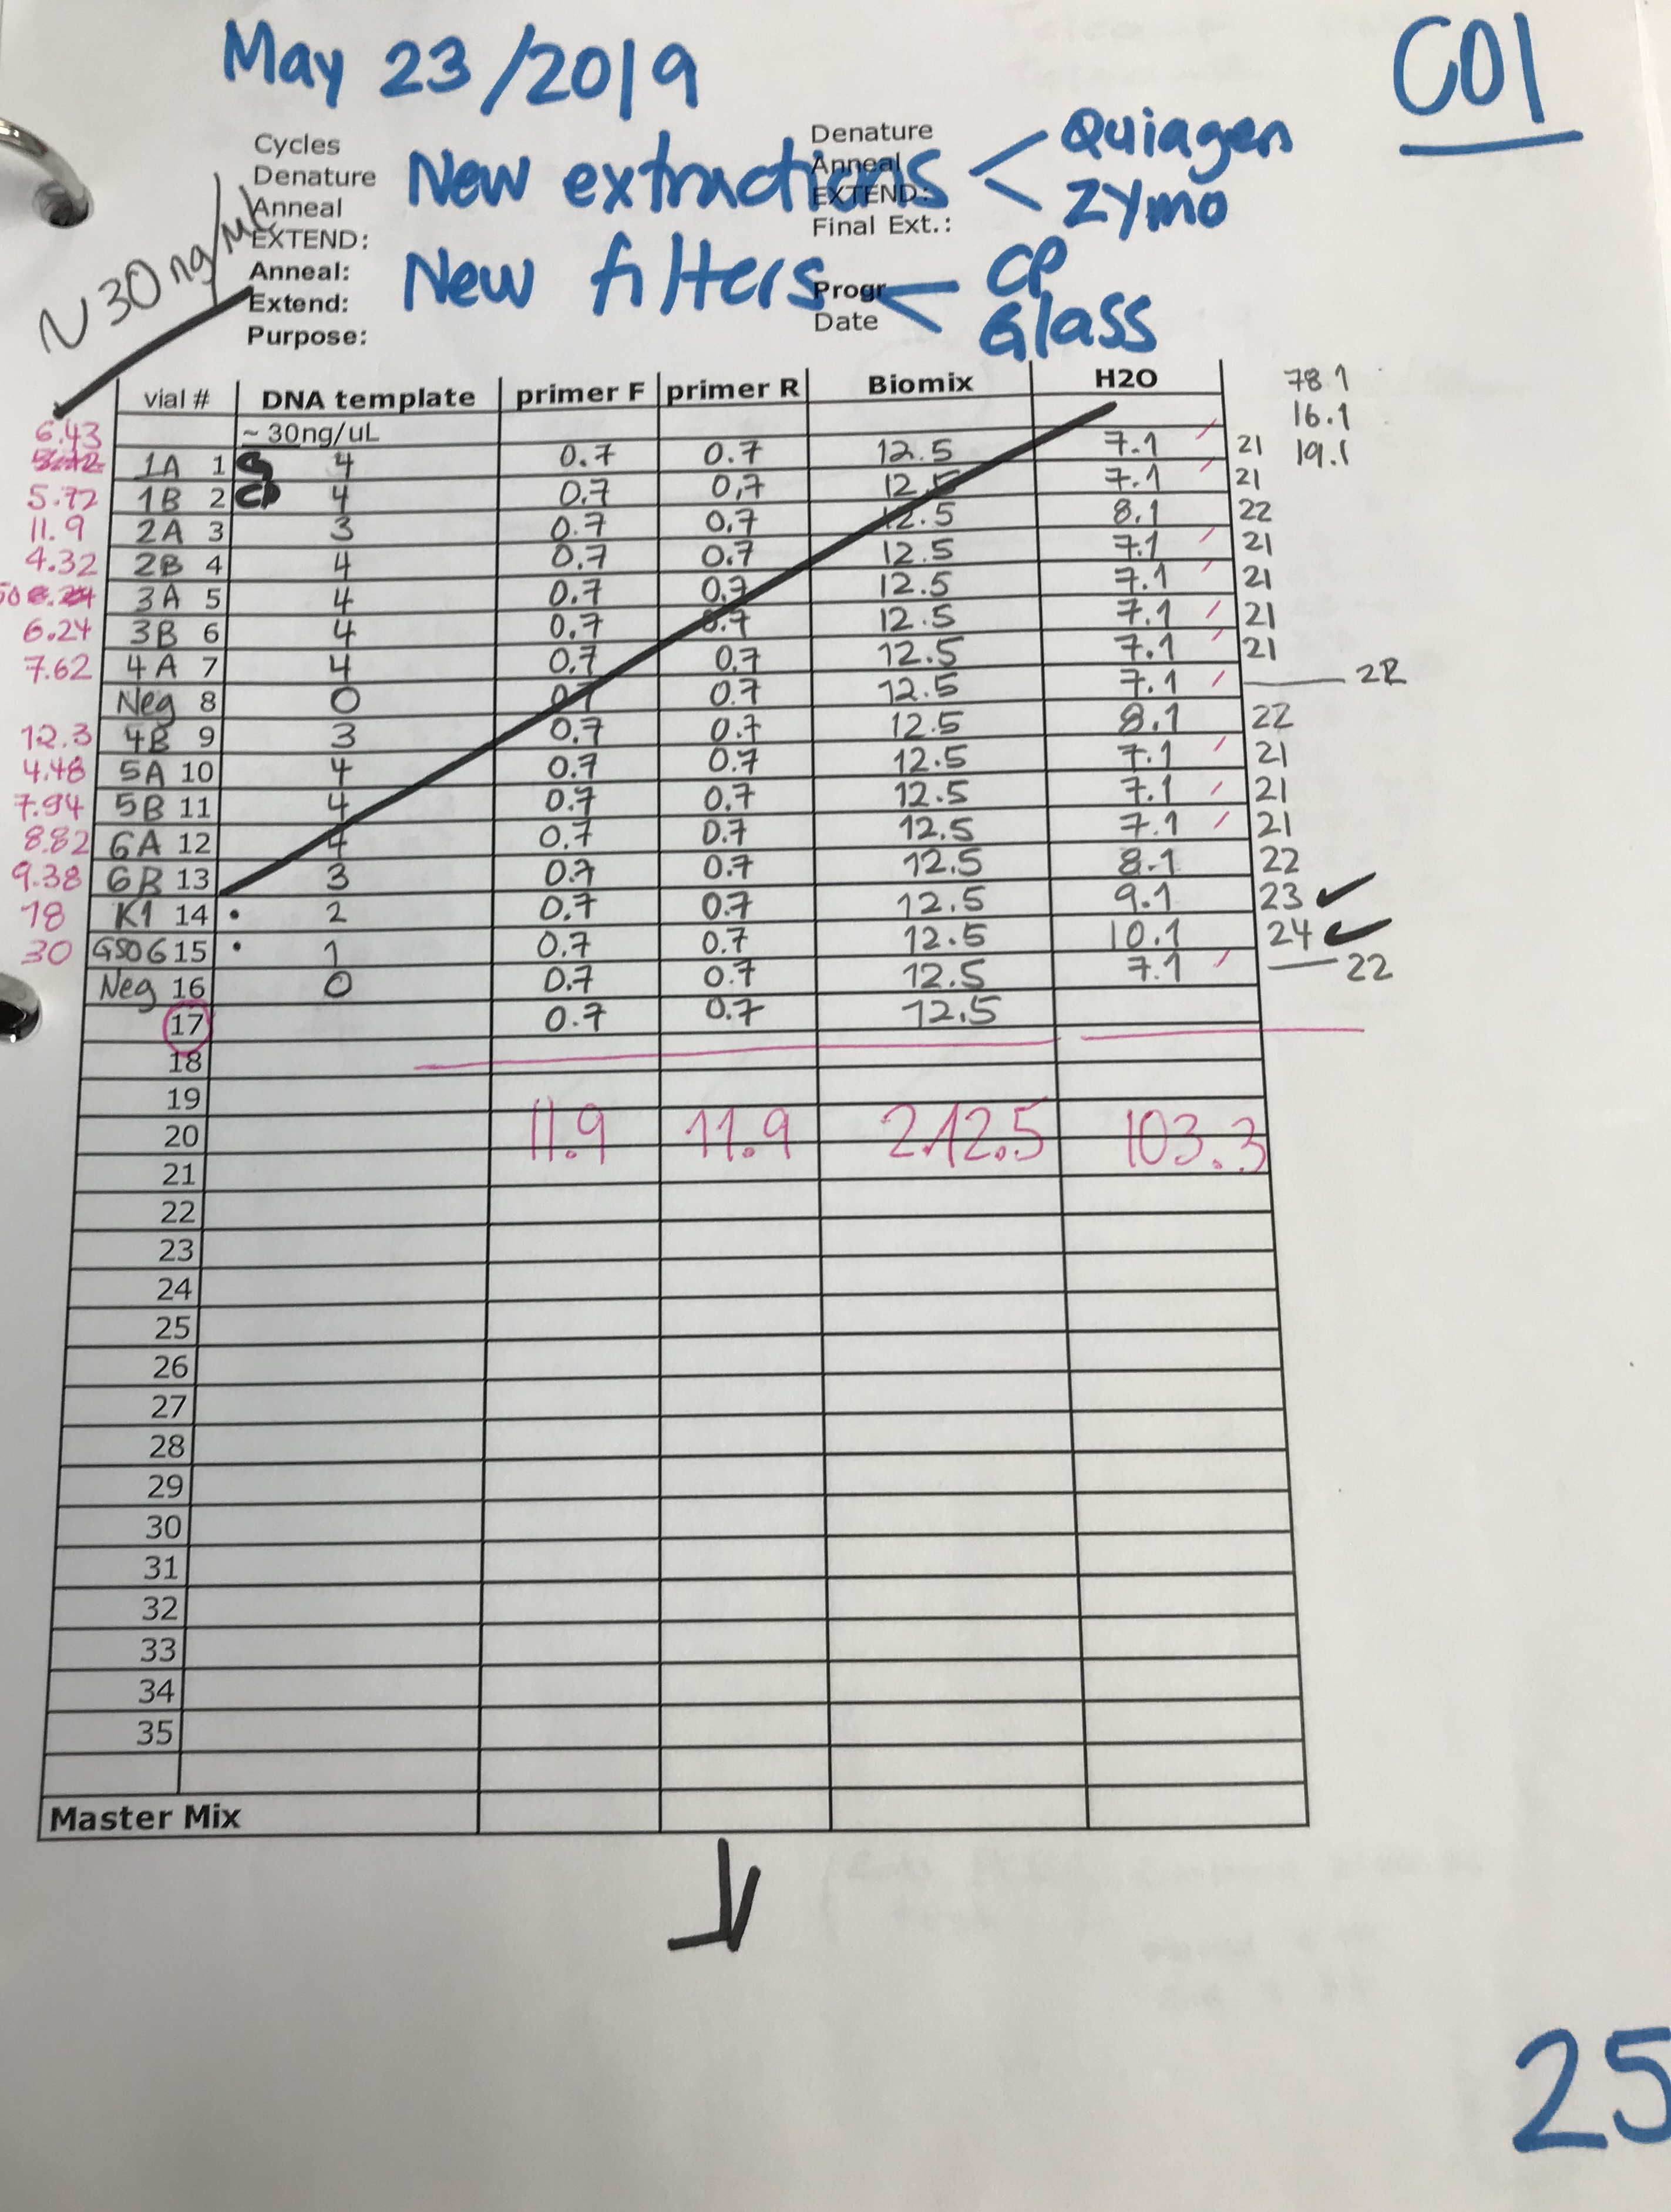 May 23/2019
C01
Cycles
Denature
Anneal
EXTEND:
Anneal:
Extend:
Purpose:
Denature
Anneal
EXTEND:
Final Ext.:
Progr
Date
New extractions < Quiagen
Zymo
New filters < CP
Glass
N 30 ng/µL
vial # DNA template primer F primer R Biomix H2O 78.1
~ 30ng/uL 16.1
19.1
6.43 5.72 1A 1 G 4 0.7 0.7 12.5 7.1 21
5.72 1B 2 CP 4 0.7 0,7 12.5 7.1 21
11.9 2A 3 3 0.7 0.7 12.5 8.1 22
4.32 2B 4 4 0.7 0.7 12.5 7.1 21
3A 5 4 0.7 0.7 12.5 7.1 21
6.24 3B 6 4 0.7 0.7 12.5 7.1 21
7.62 4A 7 4 0.7 0.7 12.5 7.1 21
Neg 8 0 0.7 0.7 12.5 7.1 22
12.3 4B 9 3 0.7 0.7 12.5 8.1 22
4.48 5A 10 4 0.7 0.7 12.5 7.1 21
7.94 5B 11 4 0.7 0.7 12.5 7.1 21
8.82 6A 12 4 0.7 0.7 12.5 7.1 21
9.38 6B 13 3 0.7 0.7 12.5 8.1 22
18 K1 14 • 2 0.7 0.7 12.5 9.1 23 ✓
30 GS06 15 • 1 0.7 0.7 12.5 10.1 24 ✓
Neg 16 0 0.7 0.7 12.5 7.1 22
17 0.7 0.7 12.5
18
19
20 11.9 11.9 212.5 103.3
21
22
23
24
25
26
27
28
29
30
31
32
33
34
35
Master Mix
25